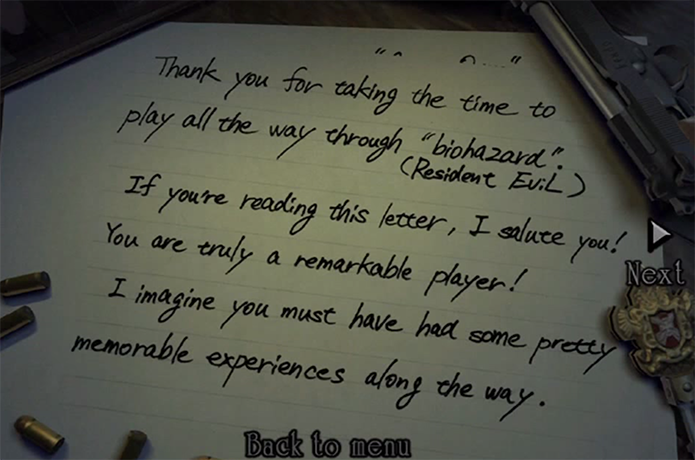 Thank you for taking the time to
play all the way through "biohazard".
(Resident EviL)
If you're reading this letter, I salute you!
You are truly a remarkable player!
I imagine you must have had some pretty
memorable experiences along the way.
Next
Back to menu